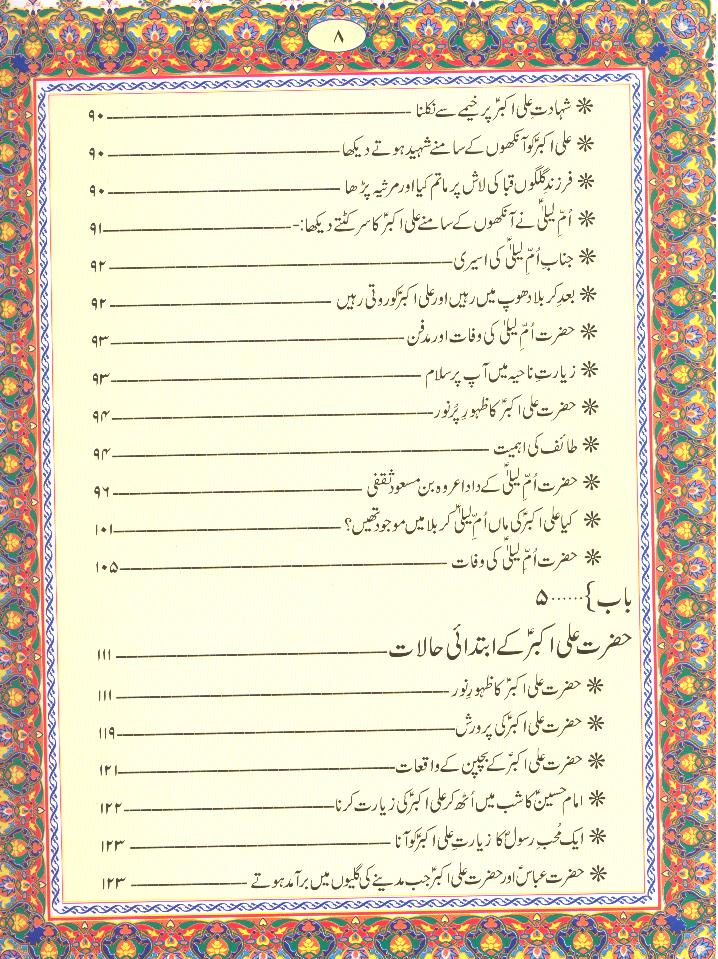 ۸
❋ شہادتِ علی اکبرؑ پر خیمے سے نکلنا ــــــــ ۹۰
❋ علی اکبرؑ کو آنکھوں کے سامنے شہید ہوتے دیکھا ــــــــ ۹۰
❋ فرزندِ گلگوں قبا کی لاش پر ماتم کیا اور مرثیہ پڑھا ــــــــ ۹۰
❋ اُمِّ لیلیٰؑ نے آنکھوں کے سامنے علی اکبرؑ کا سر کٹتے دیکھا:- ــــــــ ۹۱
❋ جناب اُمِّ لیلیٰؑ کی اسیری ــــــــ ۹۲
❋ بعدِ کربلا دھوپ میں رہیں اور علی اکبرؑ کو روتی رہیں ــــــــ ۹۲
❋ حضرت اُمِّ لیلیٰ کی وفات اور مدفن ــــــــ ۹۳
❋ زیارتِ ناحیہ میں آپ پر سلام ــــــــ ۹۳
❋ حضرت علی اکبرؑ کا ظہورِ پُرنور ــــــــ ۹۴
❋ طائف کی اہمیت ــــــــ ۹۴
❋ حضرت اُمِّ لیلیٰؑ کے دادا عروہ بن مسعود ثقفی ــــــــ ۹۶
❋ کیا علی اکبرؑ کی ماں اُمِّ لیلیٰؑ کربلا میں موجود تھیں؟ ــــــــ ۱۰۱
❋ حضرت اُمِّ لیلیٰؑ کی وفات ــــــــ ۱۰۵
باب } ...... ۵
حضرت علی اکبرؑ کے ابتدائی حالات ــــــــ ۱۱۱
❋ حضرت علی اکبرؑ کا ظہورِ نور ــــــــ ۱۱۱
❋ حضرت علی اکبرؑ کی پرورش ــــــــ ۱۱۹
❋ حضرت علی اکبرؑ کے بچپن کے واقعات ــــــــ ۱۲۱
❋ امام حسینؑ کا شب میں اُٹھ کر علی اکبرؑ کی زیارت کرنا ــــــــ ۱۲۲
❋ ایک مُحبِ رسولؐ کا زیارتِ علی اکبرؑ کو آنا ــــــــ ۱۲۳
❋ حضرت عباسؑ اور حضرت علی اکبرؑ جب مدینے کی گلیوں میں برآمد ہوتے ــــــــ ۱۲۳